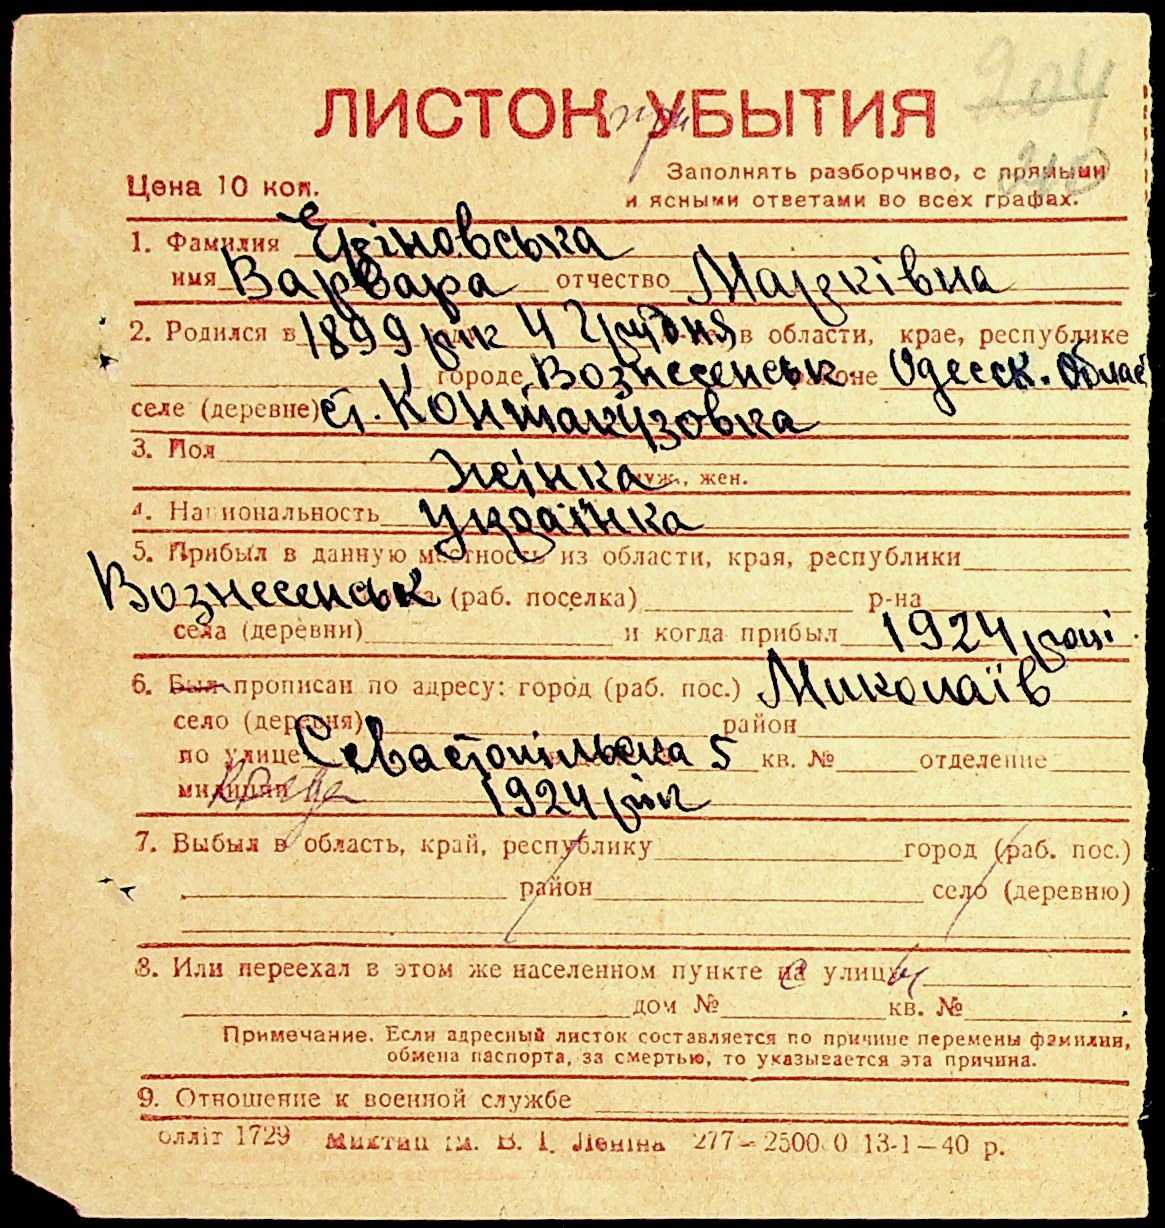 204
ЛИСТОК при УБЫТИЯ
240
Цена 10 коп.
Заполнять разборчиво, с прямыми
и ясными ответами во всех графах.
1. Фамилия
имя Варвара отчество Марківна
2. Родился в 1899 рік 4 Грудня в области, крае, республике
городе Вознесенськ районе Одесск. област
селе (деревне) ст. Контакузовка
3. Пол Жінка муж., жен.
4. Национальность Українка
5. Прибыл в данную местность из области, края, республики
Вознесенськ (раб. поселка) р-на
села (деревни) и когда прибыл 1924 році
6. Был прописан по адресу: город (раб. пос.) Миколаїв
село (деревня) район
по улице Севастопільска 5 кв. № отделение
милиции 1924 рік
7. Выбыл в область, край, республику город (раб. пос.)
район село (деревню)
8. Или переехал в этом же населенном пункте с улицы
дом № кв. №
Примечание. Если адресный листок составляется по причине перемены фамилии,
обмена паспорта, за смертью, то указывается эта причина.
9. Отношение к военной службе
олліт 1729 ім. В. І. Леніна 277—2500 0 13-1—40 р.